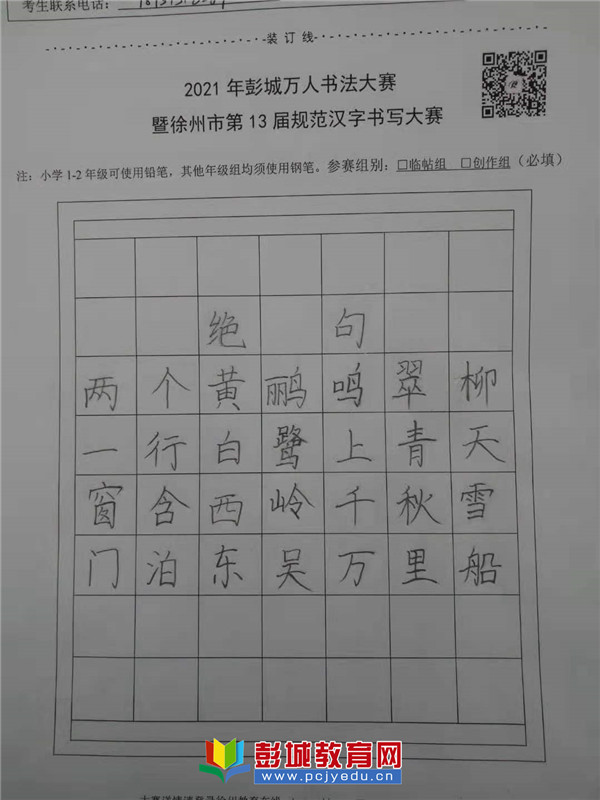 考生联系电话：
装 订 线
2021 年彭城万人书法大赛
暨徐州市第 13 届规范汉字书写大赛
注：小学 1-2 年级可使用铅笔，其他年级组均须使用钢笔。参赛组别：□临帖组 □创作组（必填）
绝句
两个黄鹂鸣翠柳
一行白鹭上青天
窗含西岭千秋雪
门泊东吴万里船
彭城教育网
www.pcjyedu.cn